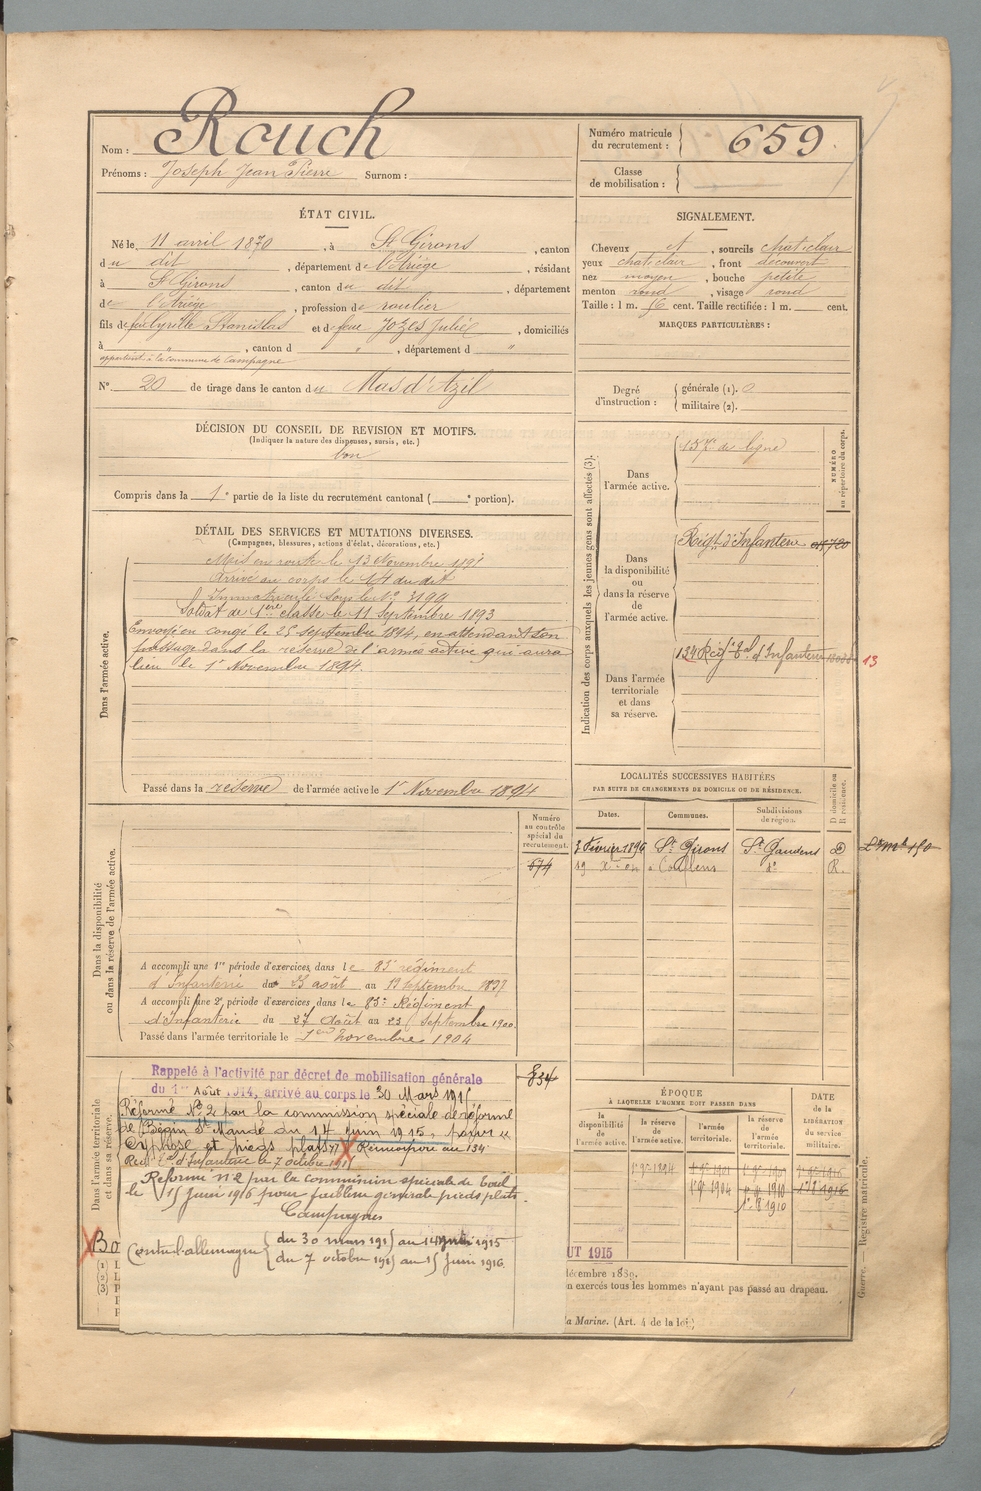 Nom : Rouch
Prénoms : Joseph Jean Pierre Surnom :
Numéro matricule du recrutement : 659
Classe de mobilisation :
ÉTAT CIVIL.
Né le 11 avril 1870, à St Girons, canton
du dit, département de l'Ariège, résidant
à St Girons, canton du dit, département
de l'Ariège, profession de roulier
fils de feu Cyrille Stanislas et de feue Jozes Julie, domiciliés
à " , canton d " , département d "
appartient à la commune de Campagne
N° 20 de tirage dans le canton du Mas d'Azil
SIGNALEMENT.
Cheveux et, sourcils chat clair
yeux chat clair, front découvert
nez moyen, bouche petite
menton rond, visage rond
Taille : 1 m. 56 cent. Taille rectifiée : 1 m. cent.
MARQUES PARTICULIÈRES :
Degré d'instruction : générale (1). 0
militaire (2).
DÉCISION DU CONSEIL DE REVISION ET MOTIFS.
(Indiquer la nature des dispenses, sursis, etc.)
bon
Compris dans la 1e partie de la liste du recrutement cantonal ( e portion).
DÉTAIL DES SERVICES ET MUTATIONS DIVERSES.
(Campagnes, blessures, actions d'éclat, décorations, etc.)
Dans l'armée active.
Mis en route le 13 Novembre 1891
Arrivé au corps le 14 du dit
Immatriculé sous le N° 3199
Soldat de 1ère classe le 11 Septembre 1893
Envoyé en congé le 25 septembre 1894, en attendant son
passage dans la réserve de l'armée active qui aura
lieu le 1er Novembre 1894.
Passé dans la réserve de l'armée active le 1er Novembre 1894
Indication des corps auxquels les jeunes gens sont affectés (3).
NUMÉRO
au répertoire du corps.
Dans
l'armée active.
137e de ligne
Dans
la disponibilité
ou
dans la réserve
de
l'armée active.
Régt d'Infanterie
Dans l'armée
territoriale
et dans
sa réserve.
134 Régt Tal d'Infanterie 13
LOCALITÉS SUCCESSIVES HABITÉES
PAR SUITE DE CHANGEMENTS DE DOMICILE OU DE RÉSIDENCE.
Dates. Communes. Subdivisions de région. D domicile ou R résidence.
3 Février 1896 St Girons St Gaudens D
19 Xbre 04 Couflens do R.
Dans la disponibilité
ou dans la réserve de l'armée active.
Numéro
au contrôle
spécial du
recrutement.
674
A accompli une 1re période d'exercices, dans le 83e régiment
d'Infanterie du 23 août au 19 Septembre 1897
A accompli une 2e période d'exercices, dans le 83e Régiment
d'Infanterie du 27 Août au 23 Septembre 1900.
Passé dans l'armée territoriale le 1er Novembre 1904
Dans l'armée territoriale
et dans sa réserve.
834
Rappelé à l'activité par décret de mobilisation générale
du 1er Août 1914, arrivé au corps le 30 Mars 1915
Réformé N° 2 par la commission spéciale de réforme
de Bégin St Mandé du 14 juin 1915, pour "
Cyphose et pieds plats". Réincorporé au 134
Régt Tal d'Infanterie le 7 octobre 1915
Réformé n° 2 par la commission spéciale de Toul
le 15 juin 1916 pour faiblesse générale pieds plats
Campagnes
Contre l'allemagne du 30 mars 1915 au 14 juin 1915
du 7 octobre 1915 au 15 juin 1916.
ÉPOQUE
À LAQUELLE L'HOMME DOIT PASSER DANS
la disponibilité de l'armée active. la réserve de l'armée active. l'armée territoriale. la réserve de l'armée territoriale.
DATE de la LIBÉRATION du service militaire.
1er 9bre 1894
1er 9bre 1904 1er 9bre 1910
1er 8 1910
Bo
UT 1915
décembre 1889.
n exercés tous les hommes n'ayant pas passé au drapeau.
la Marine. (Art. 4 de la loi
Guerre. — Registre matricule.